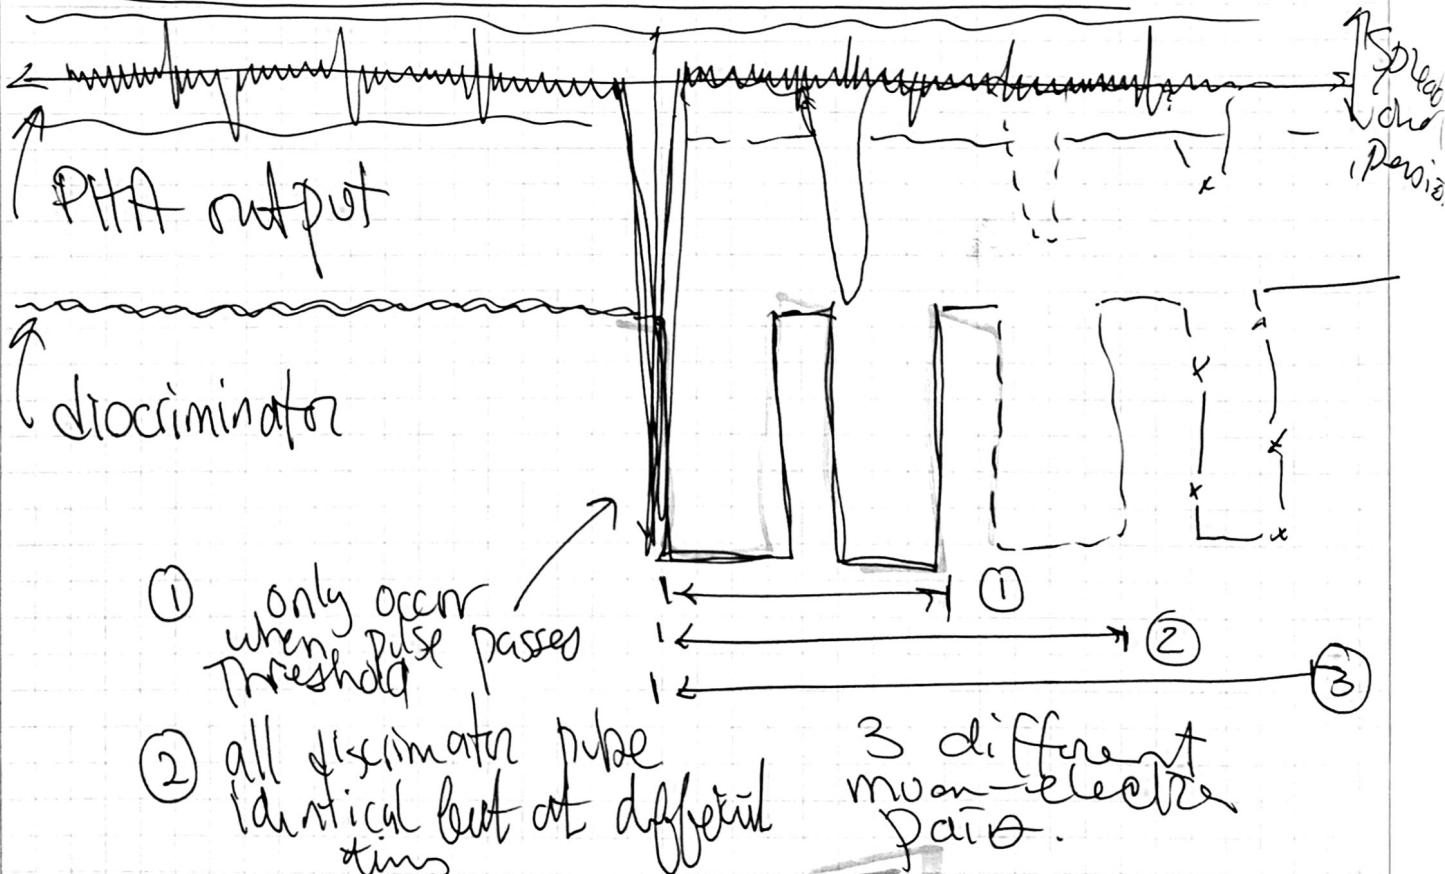 PHA output
diocriminator
① only occur
when pulse passes
Threshold
② all discrimator pulse
identical but at different
①
②
③
3 different
muon-electron
pairs.